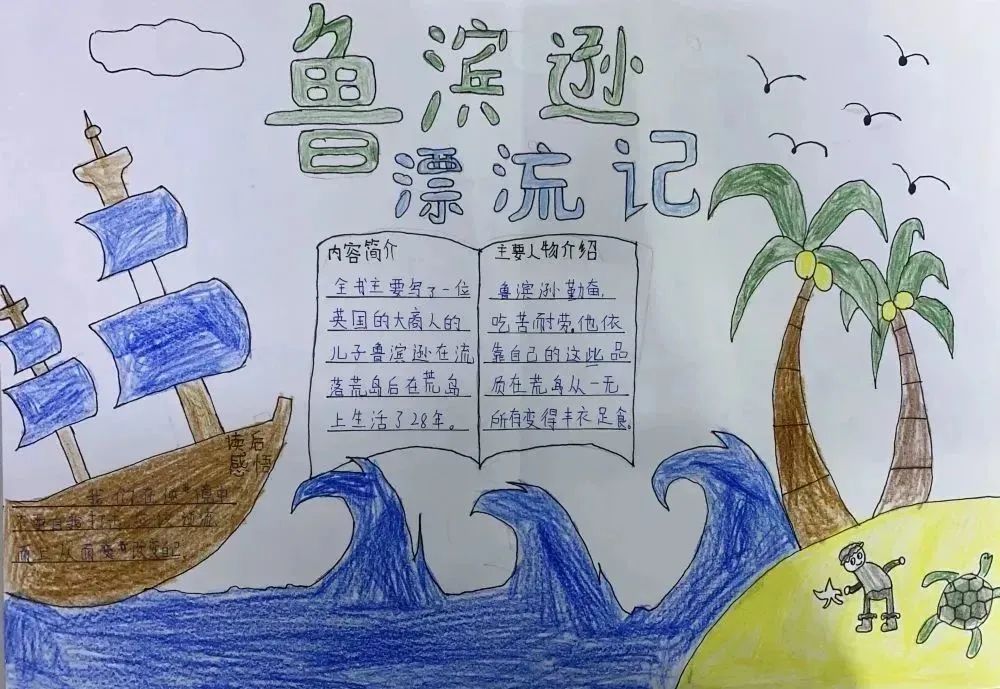 鲁滨逊
漂流记
内容简介
全书主要写了一位
英国的大商人的
儿子鲁滨逊在流
落荒岛后在荒岛
上生活了28年。
主要人物介绍
鲁滨逊勤奋,
吃苦耐劳,他依
靠自己的这些品
质在荒岛从一无
所有变得丰衣足食。
读后
感悟
我们在
要自
从而 改变自己.